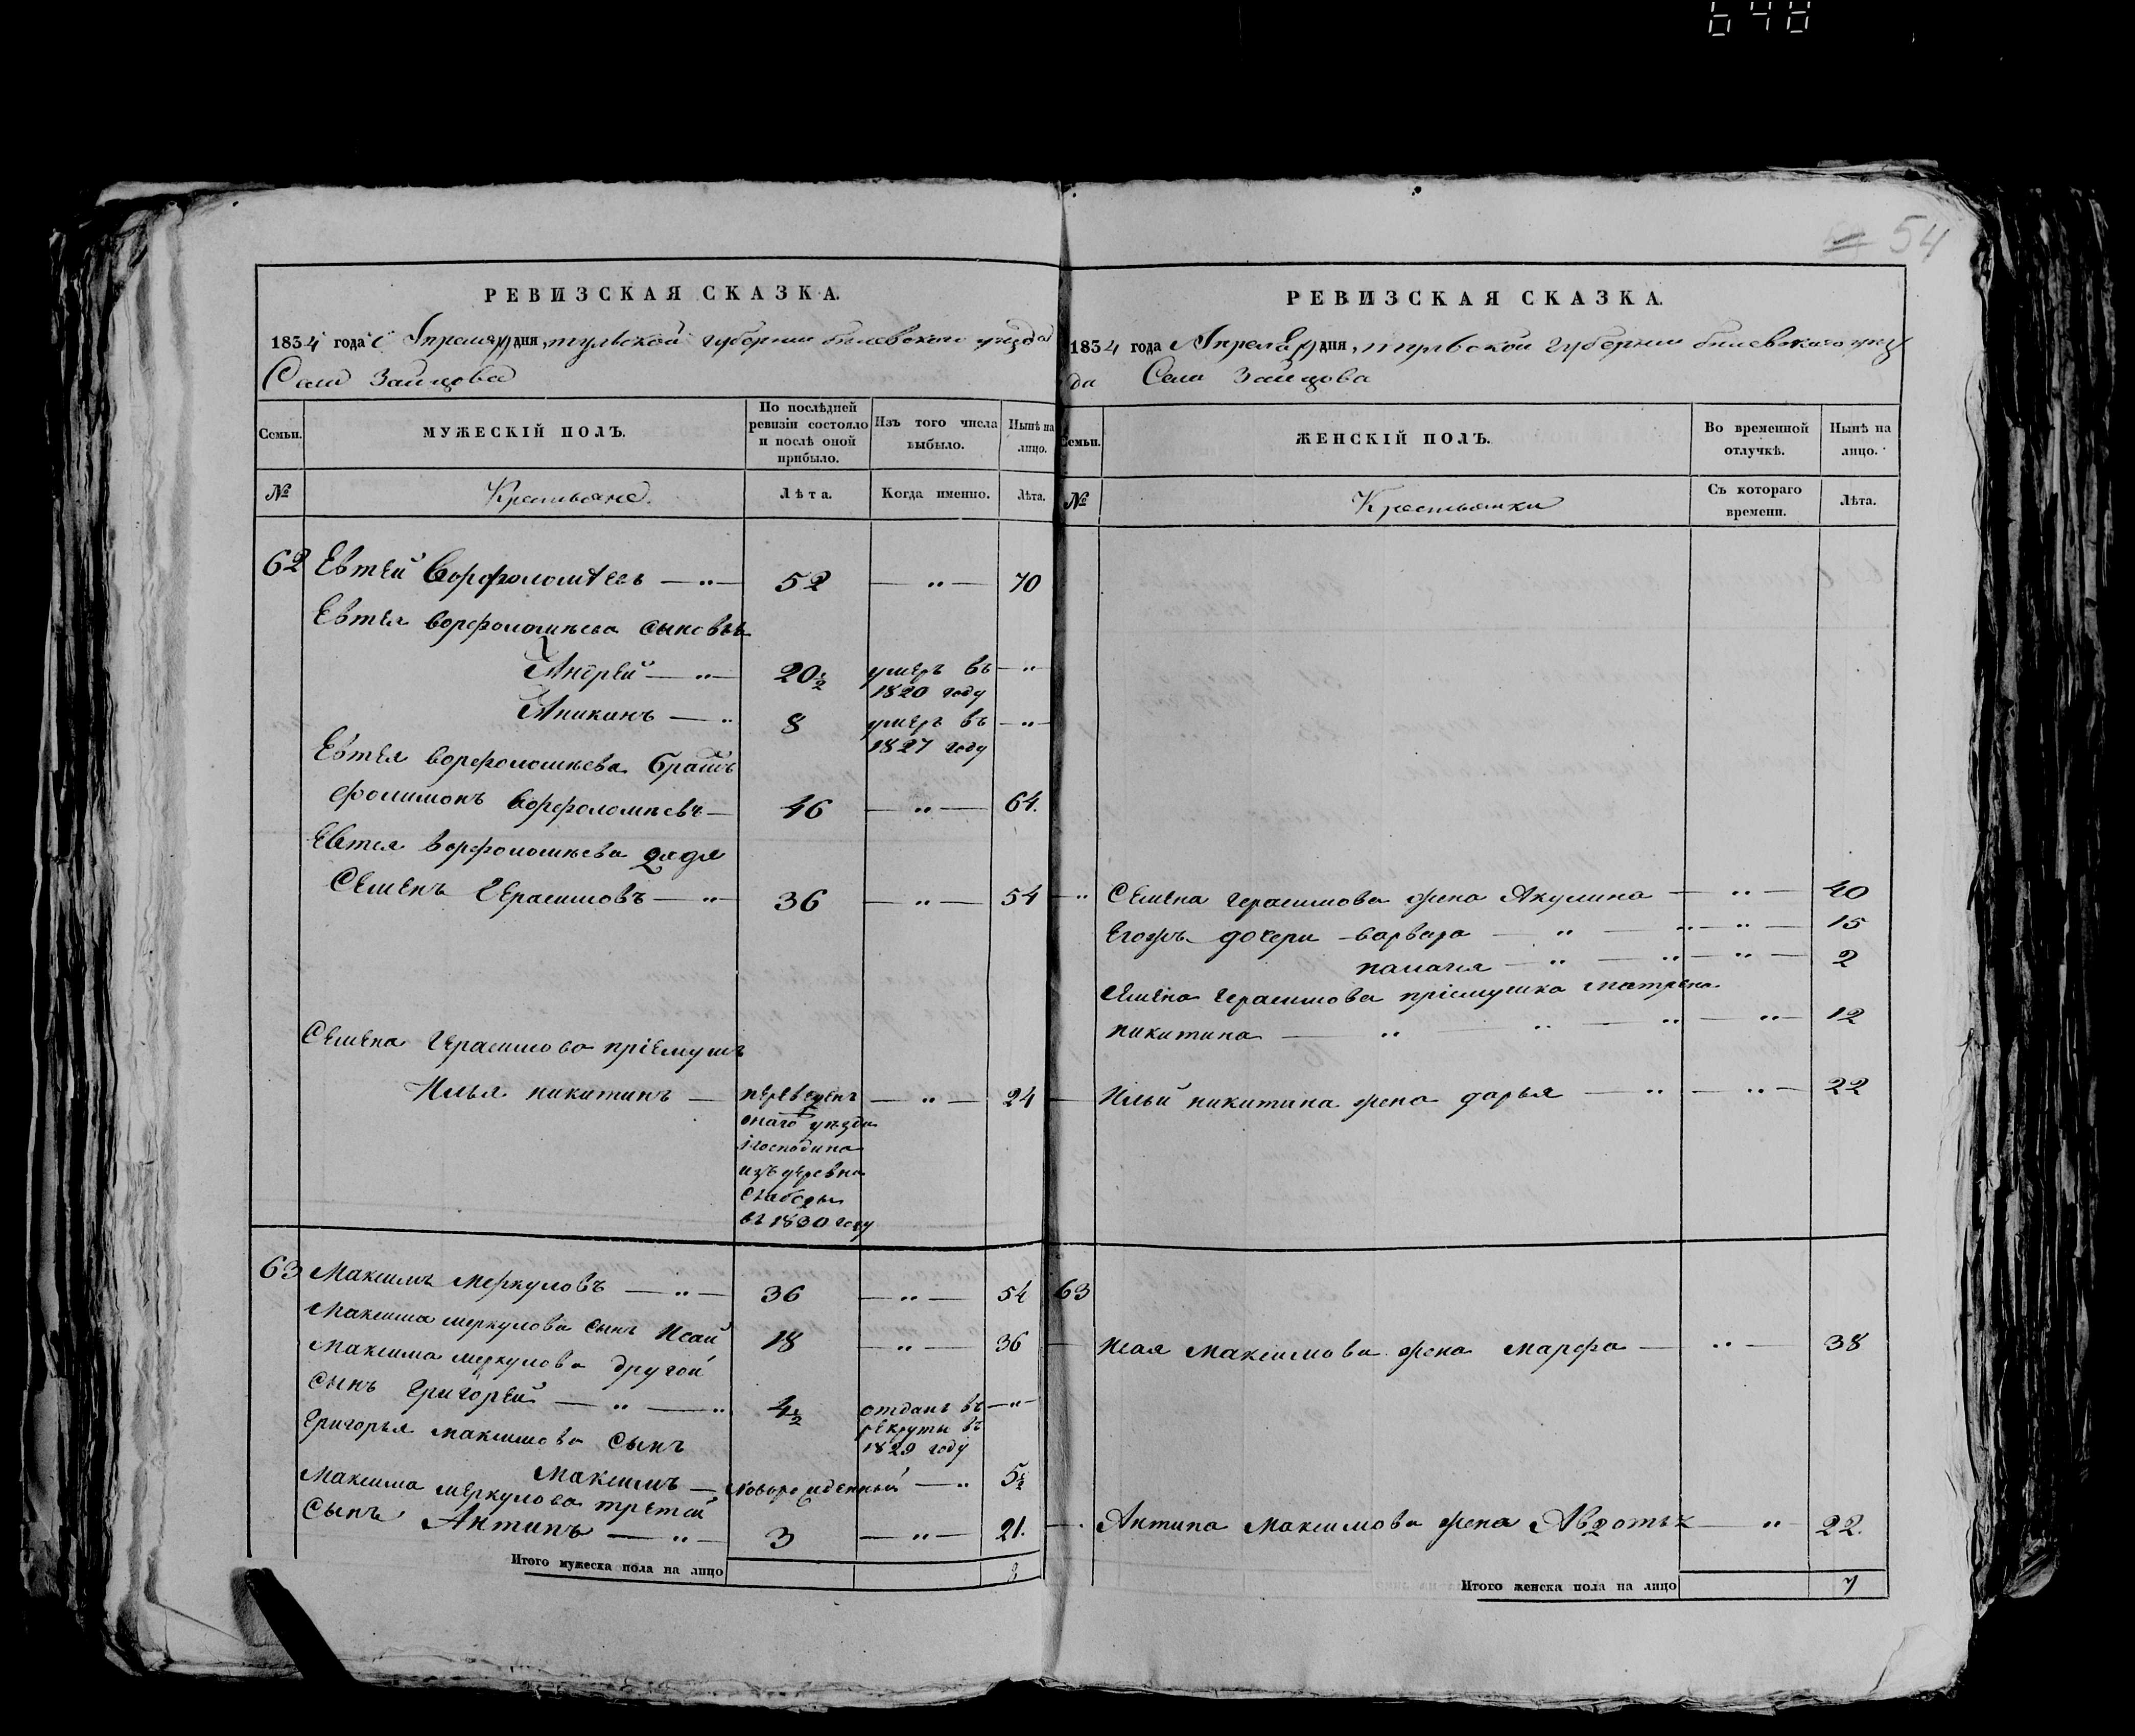 648
54
РЕВИЗСКАЯ СКАЗКА.
1834 года Апреля дня, тульской губернии белевского уезда
Села Зайцова
Семьи.
МУЖЕСКІЙ ПОЛЪ.
По послѣдней ревизіи состояло и послѣ оной прибыло.
Изъ того числа выбыло.
Нынѣ на лицо.
№
Крестьяне.
Лѣта.
Когда именно.
Лѣта.
62 Евтей Ворфоломѣевъ — „ — 52 — „ — 70
Евтея ворфоломѣева сыновья
Андрей — „ — 20½ умеръ въ 1820 году — „
Аникинъ — „ 8 умеръ въ 1827 году — „ —
Евтея ворфоломѣева братъ
фолимонъ ворфоломѣевъ — 46 — „ — 64.
Евтея ворфоломѣева дядя
Семенъ Герасимовъ — „ — 36 — „ — 54
Семена Герасимова пріемушъ
Илья никитинъ — переведенъ — „ — 24
онаго уезда
господина
изъ деревни
слабоды
въ 1830 году
63 Максимъ Меркуловъ — „ — 36 — „ — 54
Максима меркулова сынъ Исай 18 — „ — 36
Максима меркулова другой
сынъ Григорей — „ — „ 4½ отданъ въ рекруты въ 1829 году — „ —
Григорья максимова сынъ
Максимъ — новорожденный — „ 5½
Максима меркулова третей
сынъ Антипъ — „ — 3 — „ — 21.
Итого мужеска пола на лицо 8
РЕВИЗСКАЯ СКАЗКА.
1834 года Апреля дня, тульской губернии белевского уез
да Села Зайцова
Семьи.
ЖЕНСКІЙ ПОЛЪ.
Во временной отлучкѣ.
Нынѣ на лицо.
№
Крестьянки
Съ котораго времени.
Лѣта.
— „ Семена герасимова жена Акулина — „ — 40
Егожъ дочери варвара — „ — „ — „ — 15
палагея — „ — „ — „ — 2
Семена Герасимова пріемушка матрена
никитина — „ „ — „ — „ — 12
— Ильи никитина жена дарья — „ — „ — 22
63
— Исая максимова жена марфа — „ — 38
— Антипа максимова жена Авдотья — „ — 22.
Итого женска пола на лицо 7